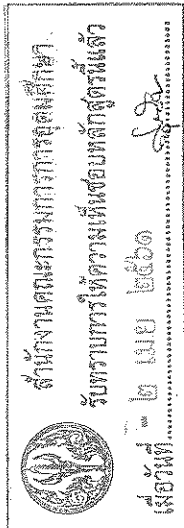 สำนักงานคณะกรรมการการอุดมศึกษา
รับทราบการให้ความเห็นชอบหลักสูตรนี้แล้ว
เมื่อวันที่ ๒ เมย ๒๕๖๑